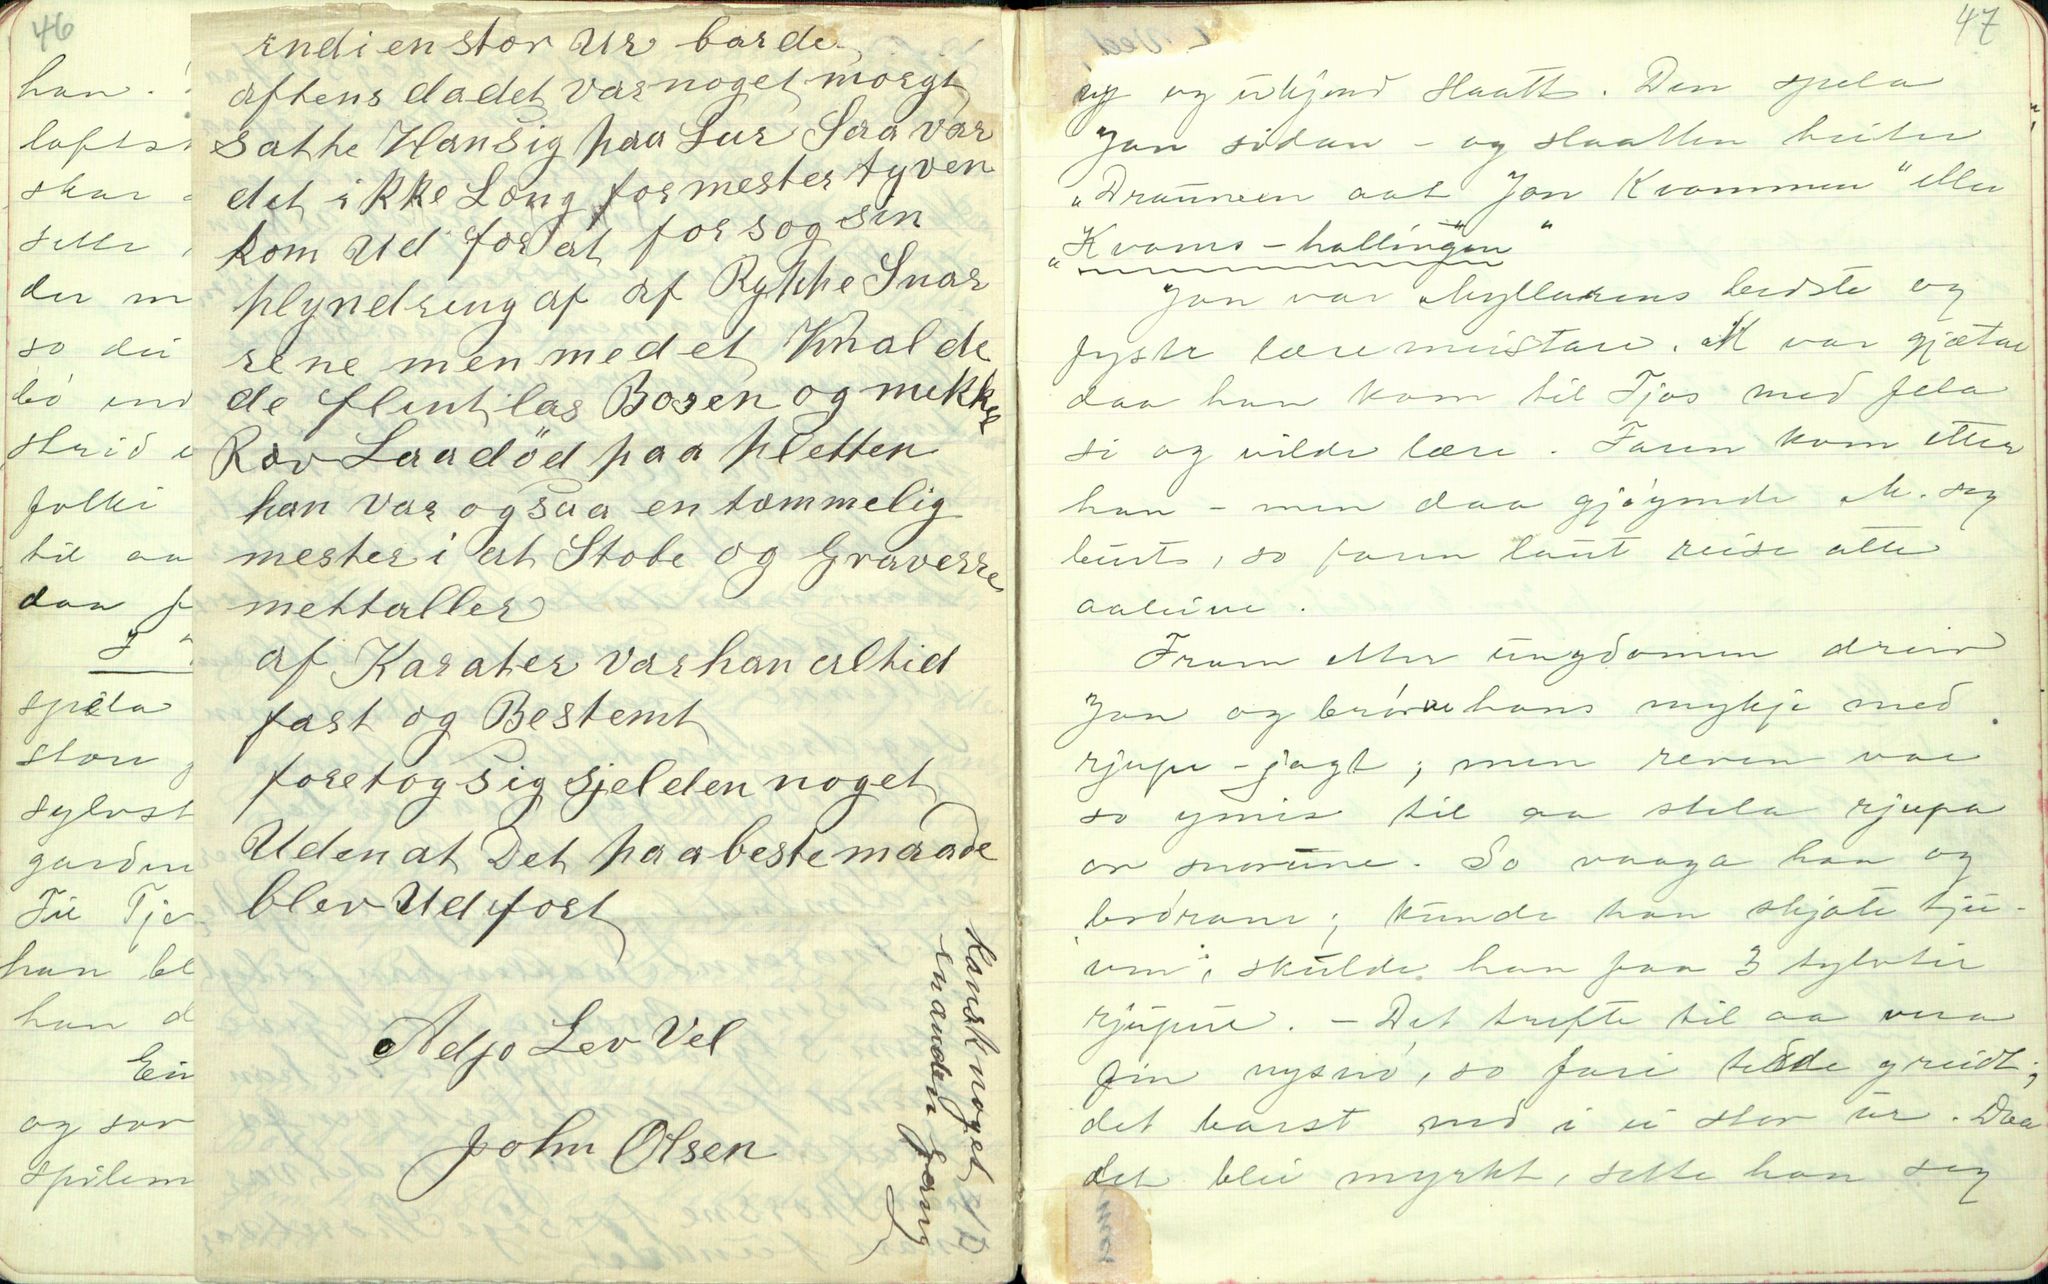 46
han.
loftst
skar
sette
der m
so dei
bö end
skrid
folki
til aa
daa f
spela
store
sylvst
garden
Til Tjo
han bl
han d
Ein
og sor
spilem
indi en stor Ur barde
aftens da det var noget morgt
satte Han sig paa Lur Saa var
det ikke Long for mester tyven
kom Ud for at for sog sin
plyndring af af Rykke Snar
rene men med et Knal de
de flint las Bosen og mekkel
Ræv Laa död paa pletten
han var ogsaa en tommelig
mester i at Stobe og Graverre
mettaller
af Karater var han altid
fast og Bestemt
foretog sig sjelden noget
Uden at Det paa beste maade
blev Udfort
Adjo Lev Vel
John Olsen
Kansk noget
en anden Gang
47
ny og ukjend slaatt. Den spela
Jon sidan - og slaatten heiter
„Draumen aat Jon Kvammen" eller
„Kvams-hallingen"
Jon var Myllarens beidste og
fyste læremeistare. M var gjætar
daa han kom til Tjos med fela
si og vilde lære. Faren kom etter
han - men daa gjöymde M. seg
burt, so faren laut reise atte
aaleine.
Fram etter ungdomen dreiv
Jon og brörane hans mykje med
rjupe-jagt; men reven var
so ymis til aa stela rjupa
or snorune. So vaaga han og
brörane; kunde han skjote tju-
ven, skulde han faa 3 tylvter
rjupur. - Det trefte til aa vera
fin nysnö, so fari tedde greidt;
det barst ned i ei stor ur. Daa
det blei myrkt, sette han seg